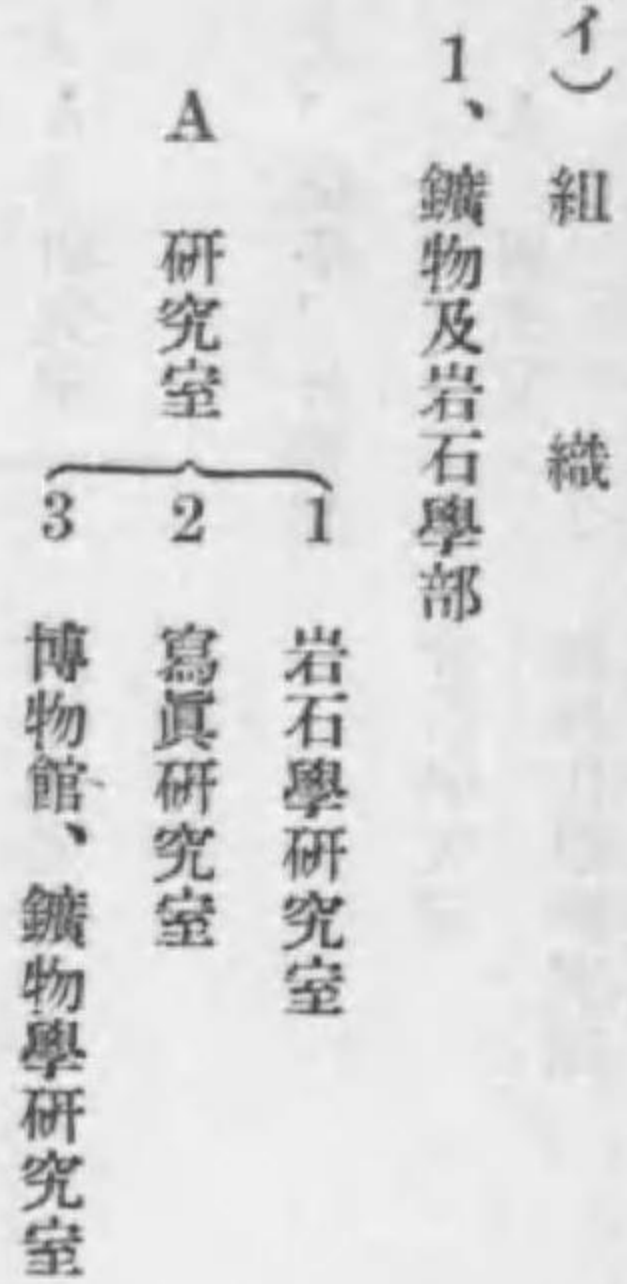 イ）組織
1、鑛物及岩石學部
A 研究室
1 岩石學研究室
2 寫眞硏究室
3 博物館、鑛物學研究室